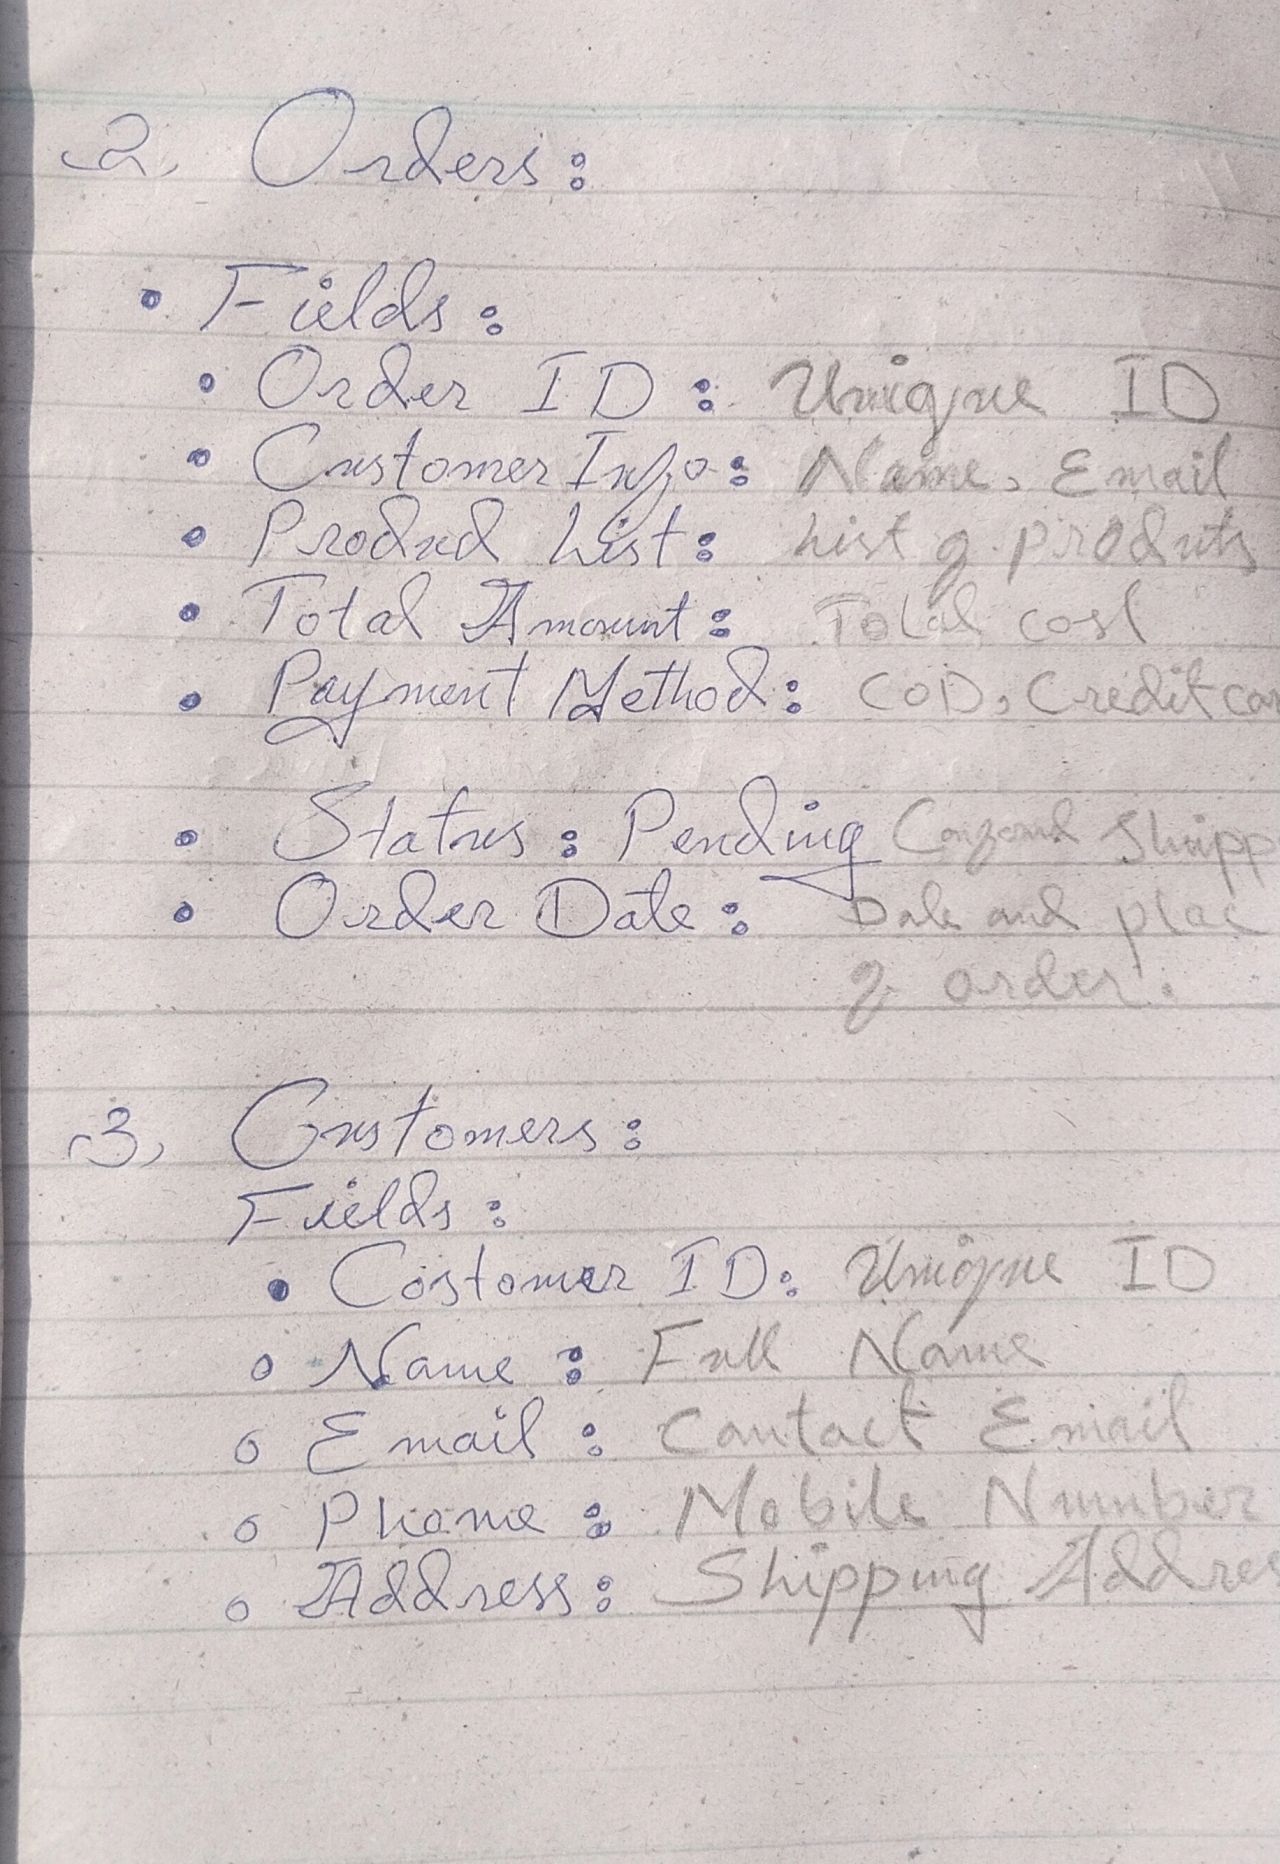 2. Orders:
• Fields:
• Order ID: Unique ID
• Customer Info: Name, Email
• Product List: List of produts
• Total Amount: Total cost
• Payment Method: COD, Credit car
• Status: Pending Shipp
• Order Date: Date and plac
of order.
3. Customers:
Fields:
• Costomer ID: Unique ID
• Name: Full Name
• Email: Contact Email
• Phone: Mobile Number
• Address: Shipping Addres